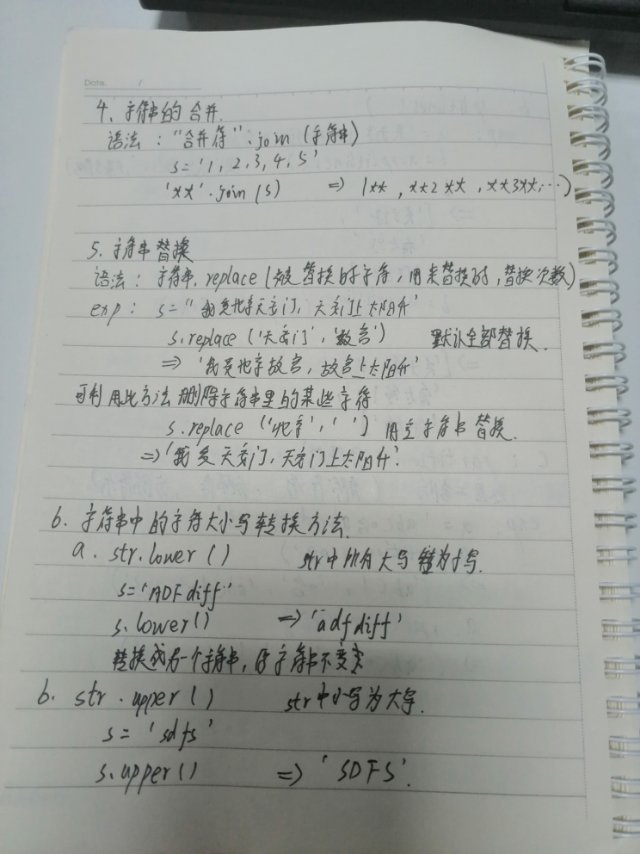 Date. /
4、字符串的合并.
语法："合并符".join (字符串)
s='1,2,3,4,5'
'**'.join(s) => 1**,**2**,**3**,...)
5、字符串替换
语法：字符串.replace(被替换的字符,用来替换的,替换次数)
exp: s="我爱北京天安门,天安门上太阳升'
s.replace('天安门','故宫') 默认全部替换.
=> '我爱北京故宫,故宫上太阳升'
可利用此方法删除字符串里的某些字符
s.replace('北京','') 用空字符串替换.
=>'我爱天安门,天安门上太阳升'.
6. 字符串中的字符大小写转换方法.
a. str.lower() str中所有大写转为小写.
s='ADFdiff'
s.lower() => 'adfdiff'
转换成另一个字符串,原字符串不变
b. str.upper() str中小写为大写.
s='sdfs'
s.upper() => 'SDFS'.